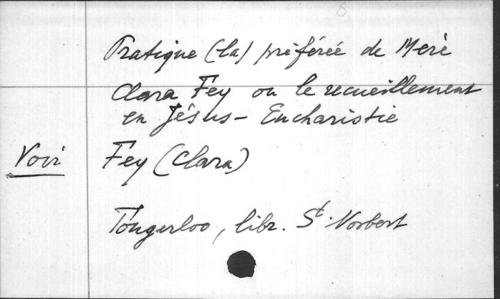 Pratique (la) préférée de Mère
Clara Fey ou le recueillement
en Jésus-Eucharistie
Voir Fey (Clara)
Tongerloo, libr. St. Norbert